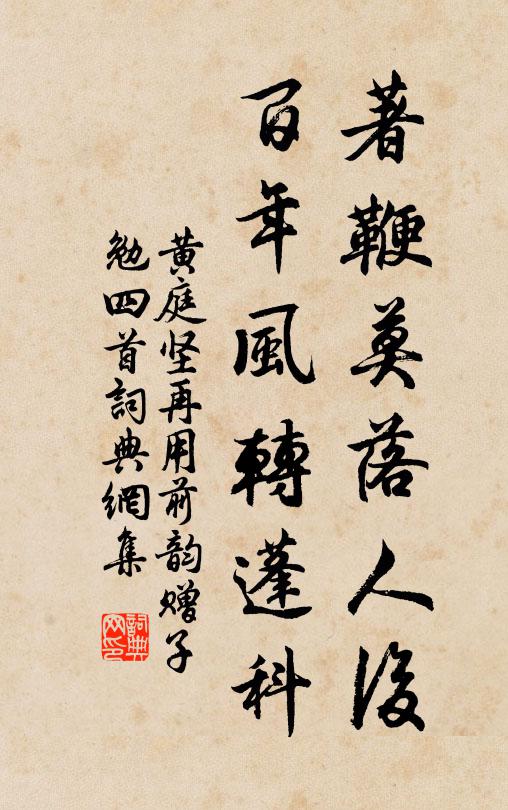 著鞭莫落人後
百年風轉蓬科
黄庭坚再用前韵赠子
勉四首詞典網集
詞典网印